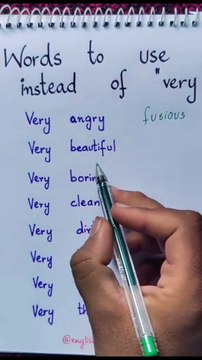 Words to use
instead of "very
Very angry fusious
Very beautiful
Very boring
Very clean
Very
Very
Very
Very